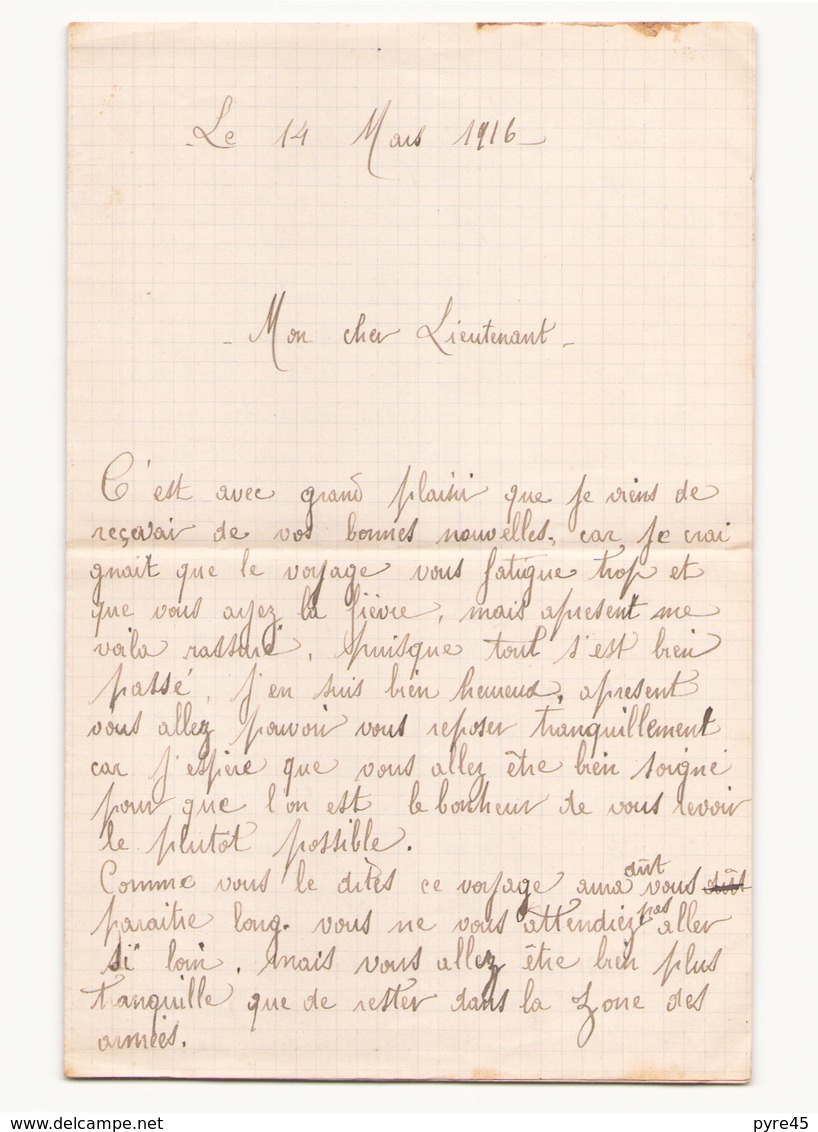 Le 14 Mars 1916
- Mon cher Lieutenant -
C'est avec grand plaisir que je viens de
reçevair de vos bonnes nouvelles, car je crai
gnait que le voyage vous fatigue trop et
que vous ayez la fièvre, mais apresent me
voila rassuré, puisque tout s'est bien
passé, j'en suis bien heureux, apresent
vous allez pouvoir vous reposer tranquillement
car j'espère que vous allez être bien soigné
pour que l'on est le bonheur de vous revoir
le plutot possible.
Comme vous le dites ce voyage aura dût vous dût
paraitre long. vous ne vous attendiez pas aller
si loin, mais vous allez être bien plus
tranquille que de rester dans la zone des
armées.
www.delcampe.net
pyre45